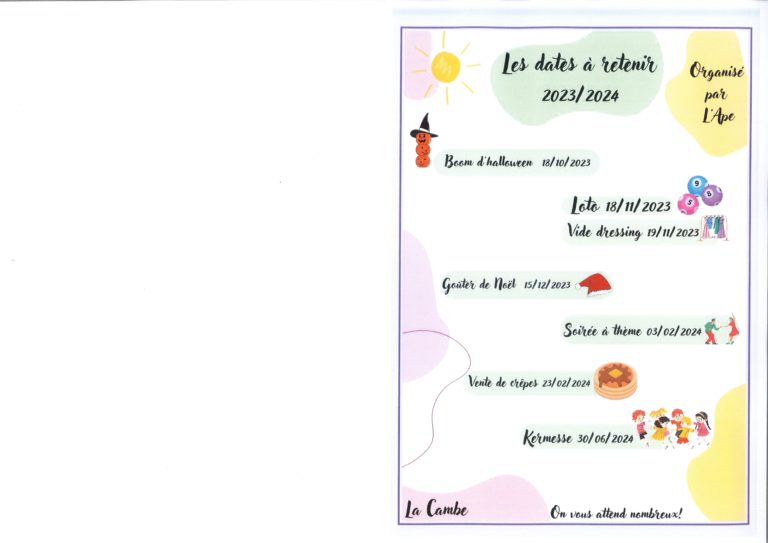 Les dates à retenir
2023/2024
Organisé
par
L'Ape
Boom d'halloween 18/10/2023
Loto 18/11/2023
Vide dressing 19/11/2023
Goûter de Noël 15/12/2023
Soirée à thème 03/02/2024
Vente de crêpes 23/02/2024
Kermesse 30/06/2024
La Cambe
On vous attend nombreux!